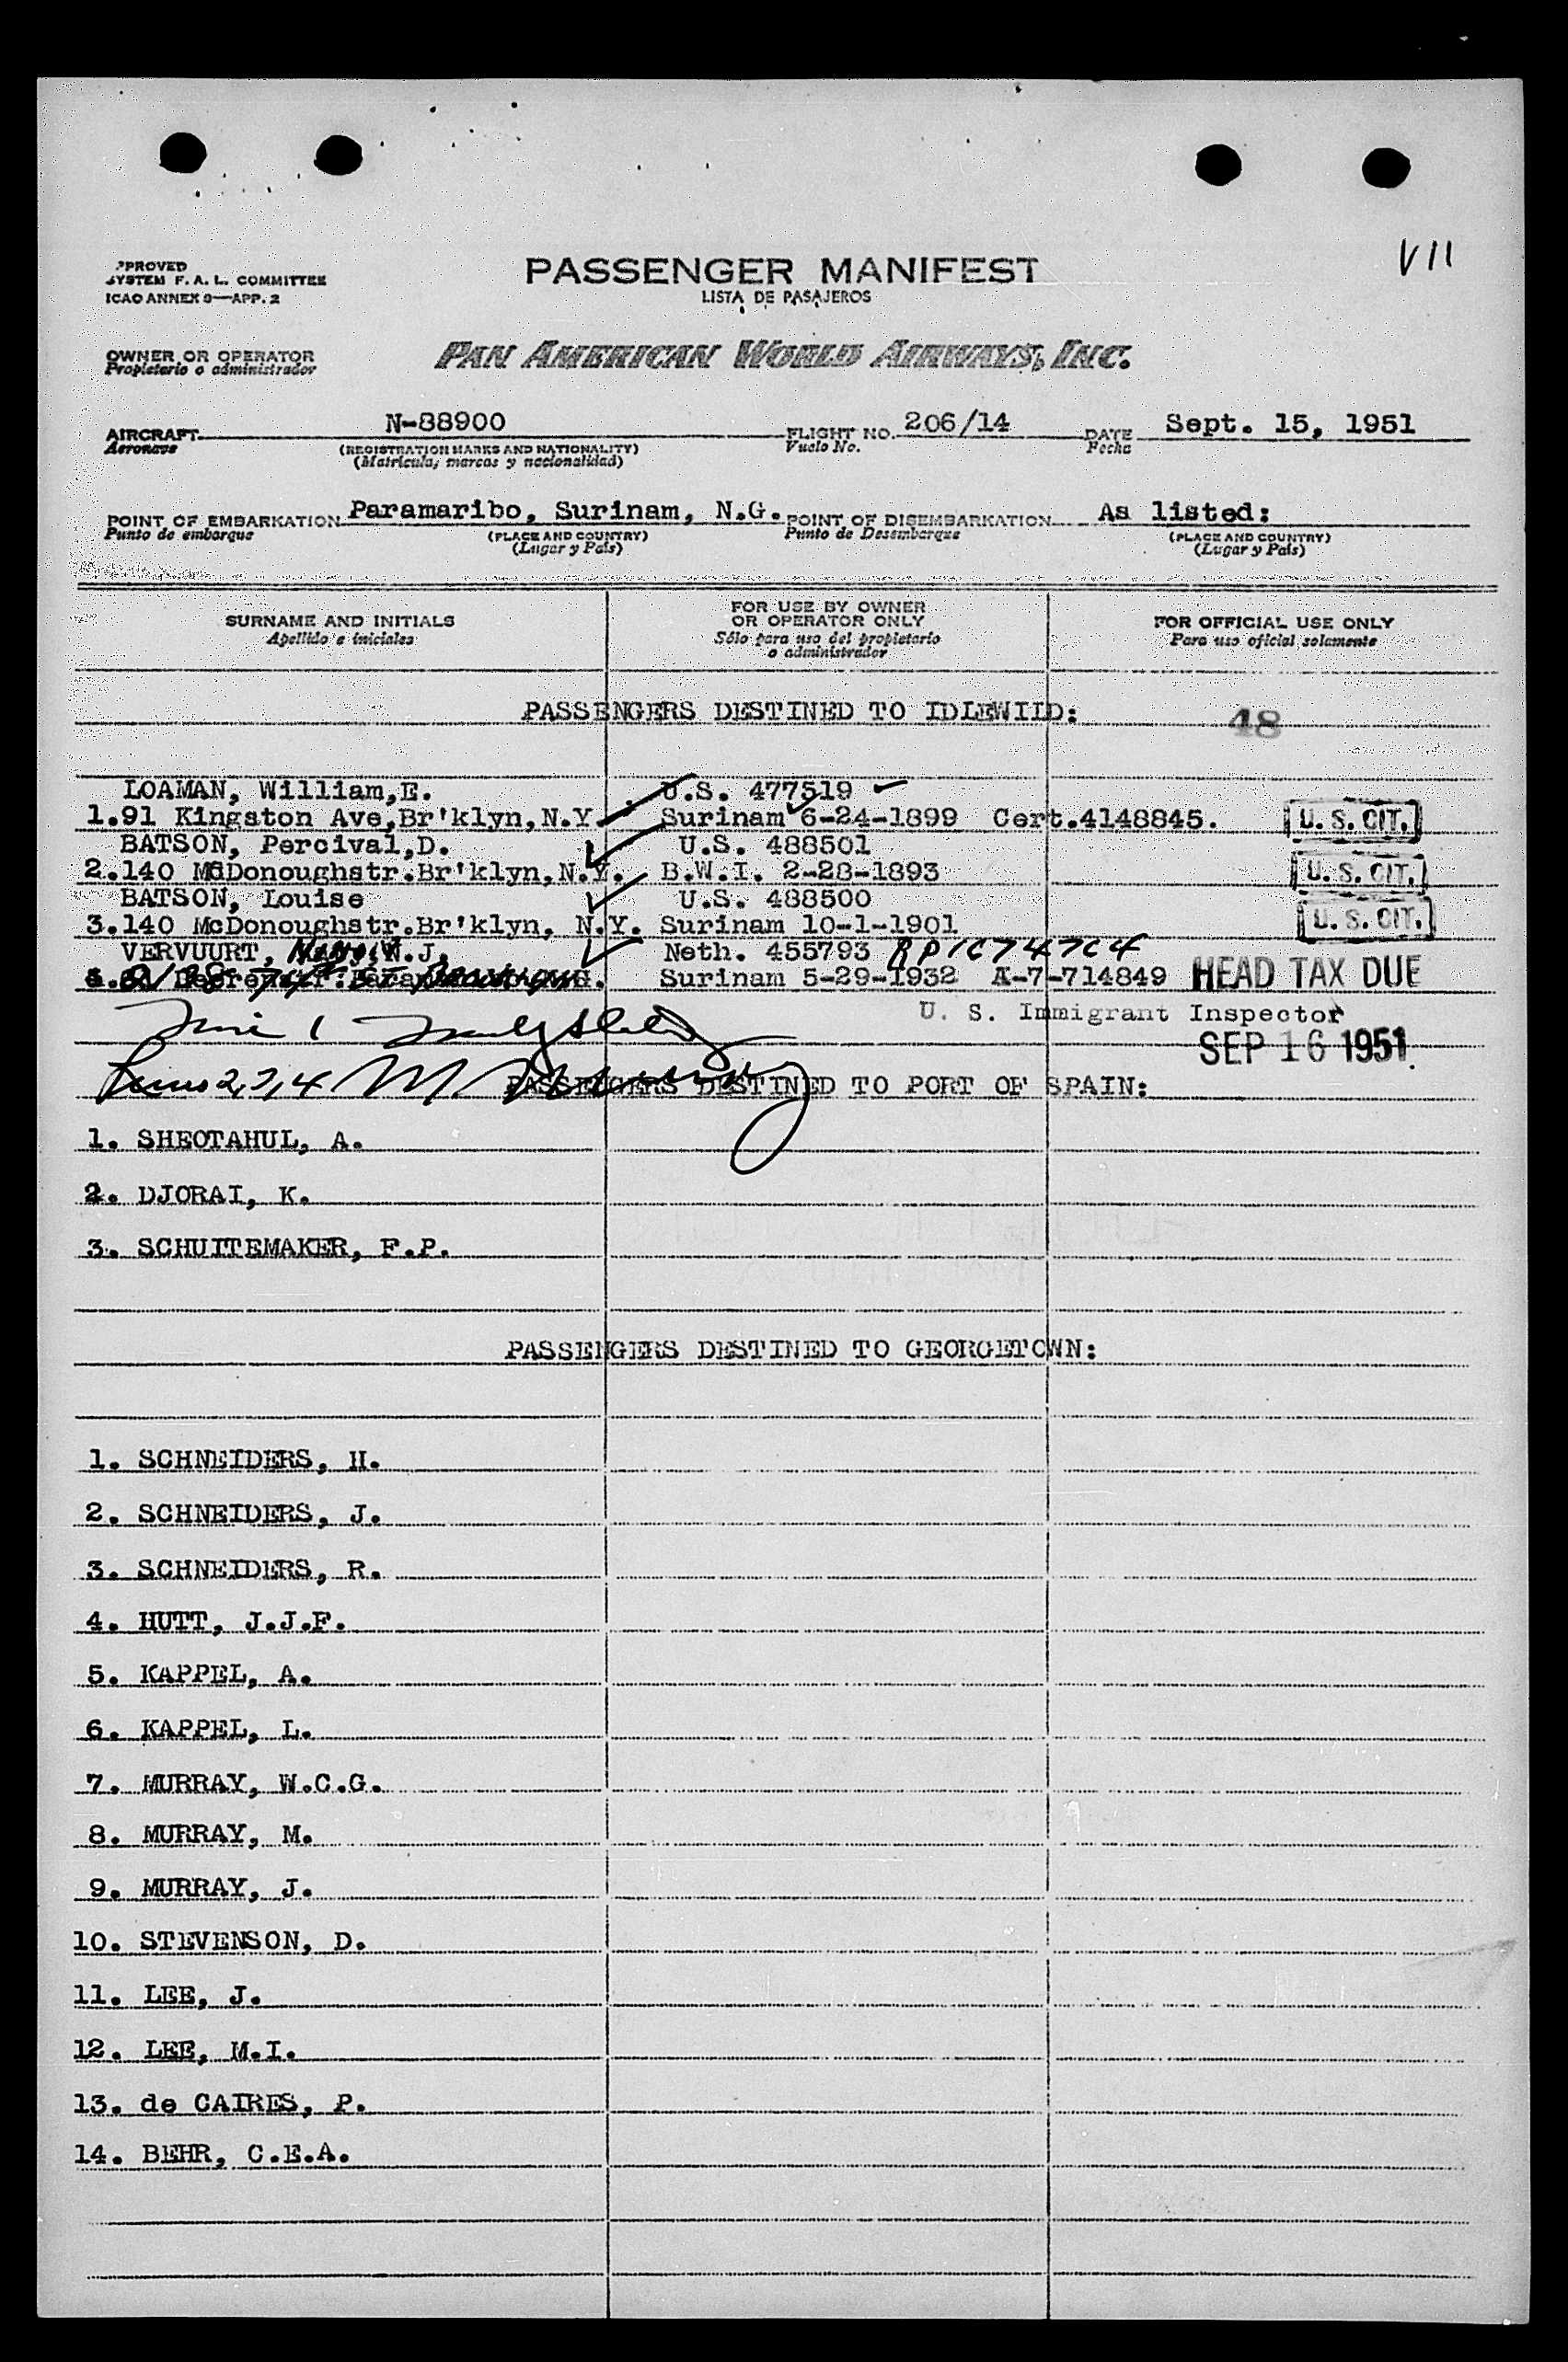 V11
APPROVED
SYSTEM F. A. L. COMMITTEE
ICAO ANNEX 9—APP. 2
PASSENGER MANIFEST
LISTA DE PASAJEROS
OWNER OR OPERATOR
Propietario o administrador
PAN AMERICAN WORLD AIRWAYS, INC.
AIRCRAFT N-88900 FLIGHT NO. 206/14 DATE Sept. 15, 1951
Aeronave (REGISTRATION MARKS AND NATIONALITY) Vuelo No. Fecha
(Matrícula, marcas y nacionalidad)
POINT OF EMBARKATION Paramaribo, Surinam, N.G. POINT OF DISEMBARKATION As listed:
Punto de embarque (PLACE AND COUNTRY) Punto de Desembarque (PLACE AND COUNTRY)
(Lugar y País) (Lugar y País)
SURNAME AND INITIALS FOR USE BY OWNER OR OPERATOR ONLY FOR OFFICIAL USE ONLY
Apellido e iniciales Sólo para uso del propietario o administrador Para uso oficial solamente
PASSENGERS DESTINED TO IDLEWILD: 48
LOAMAN, William,E. U.S. 477519
1.91 Kingston Ave,Br'klyn,N.Y. Surinam 6-24-1899 Cert.4148845. U.S.CIT.
BATSON, Percival,D. U.S. 488501
2.140 McDonoughstr.Br'klyn,N.Y. B.W.I. 2-28-1893 U.S.CIT.
BATSON, Louise U.S. 488500
3.140 McDonoughstr.Br'klyn, N.Y. Surinam 10-1-1901 U.S.CIT.
VERVUURT, W.J. Neth. 455793 RP1674764
Surinam 5-29-1932 A-7-714849 HEAD TAX DUE
U. S. Immigrant Inspector
SEP 16 1951
2, 3, 4
PASSENGERS DESTINED TO PORT OF SPAIN:
1. SHEOTAHUL, A.
2. DJORAI, K.
3. SCHUITEMAKER, F.P.
PASSENGERS DESTINED TO GEORGETOWN:
1. SCHNEIDERS, H.
2. SCHNEIDERS, J.
3. SCHNEIDERS, R.
4. HUTT, J.J.F.
5. KAPPEL, A.
6. KAPPEL, L.
7. MURRAY, W.C.G.
8. MURRAY, M.
9. MURRAY, J.
10. STEVENSON, D.
11. LEE, J.
12. LEE, M.I.
13. de CAIRES, P.
14. BEHR, C.E.A.